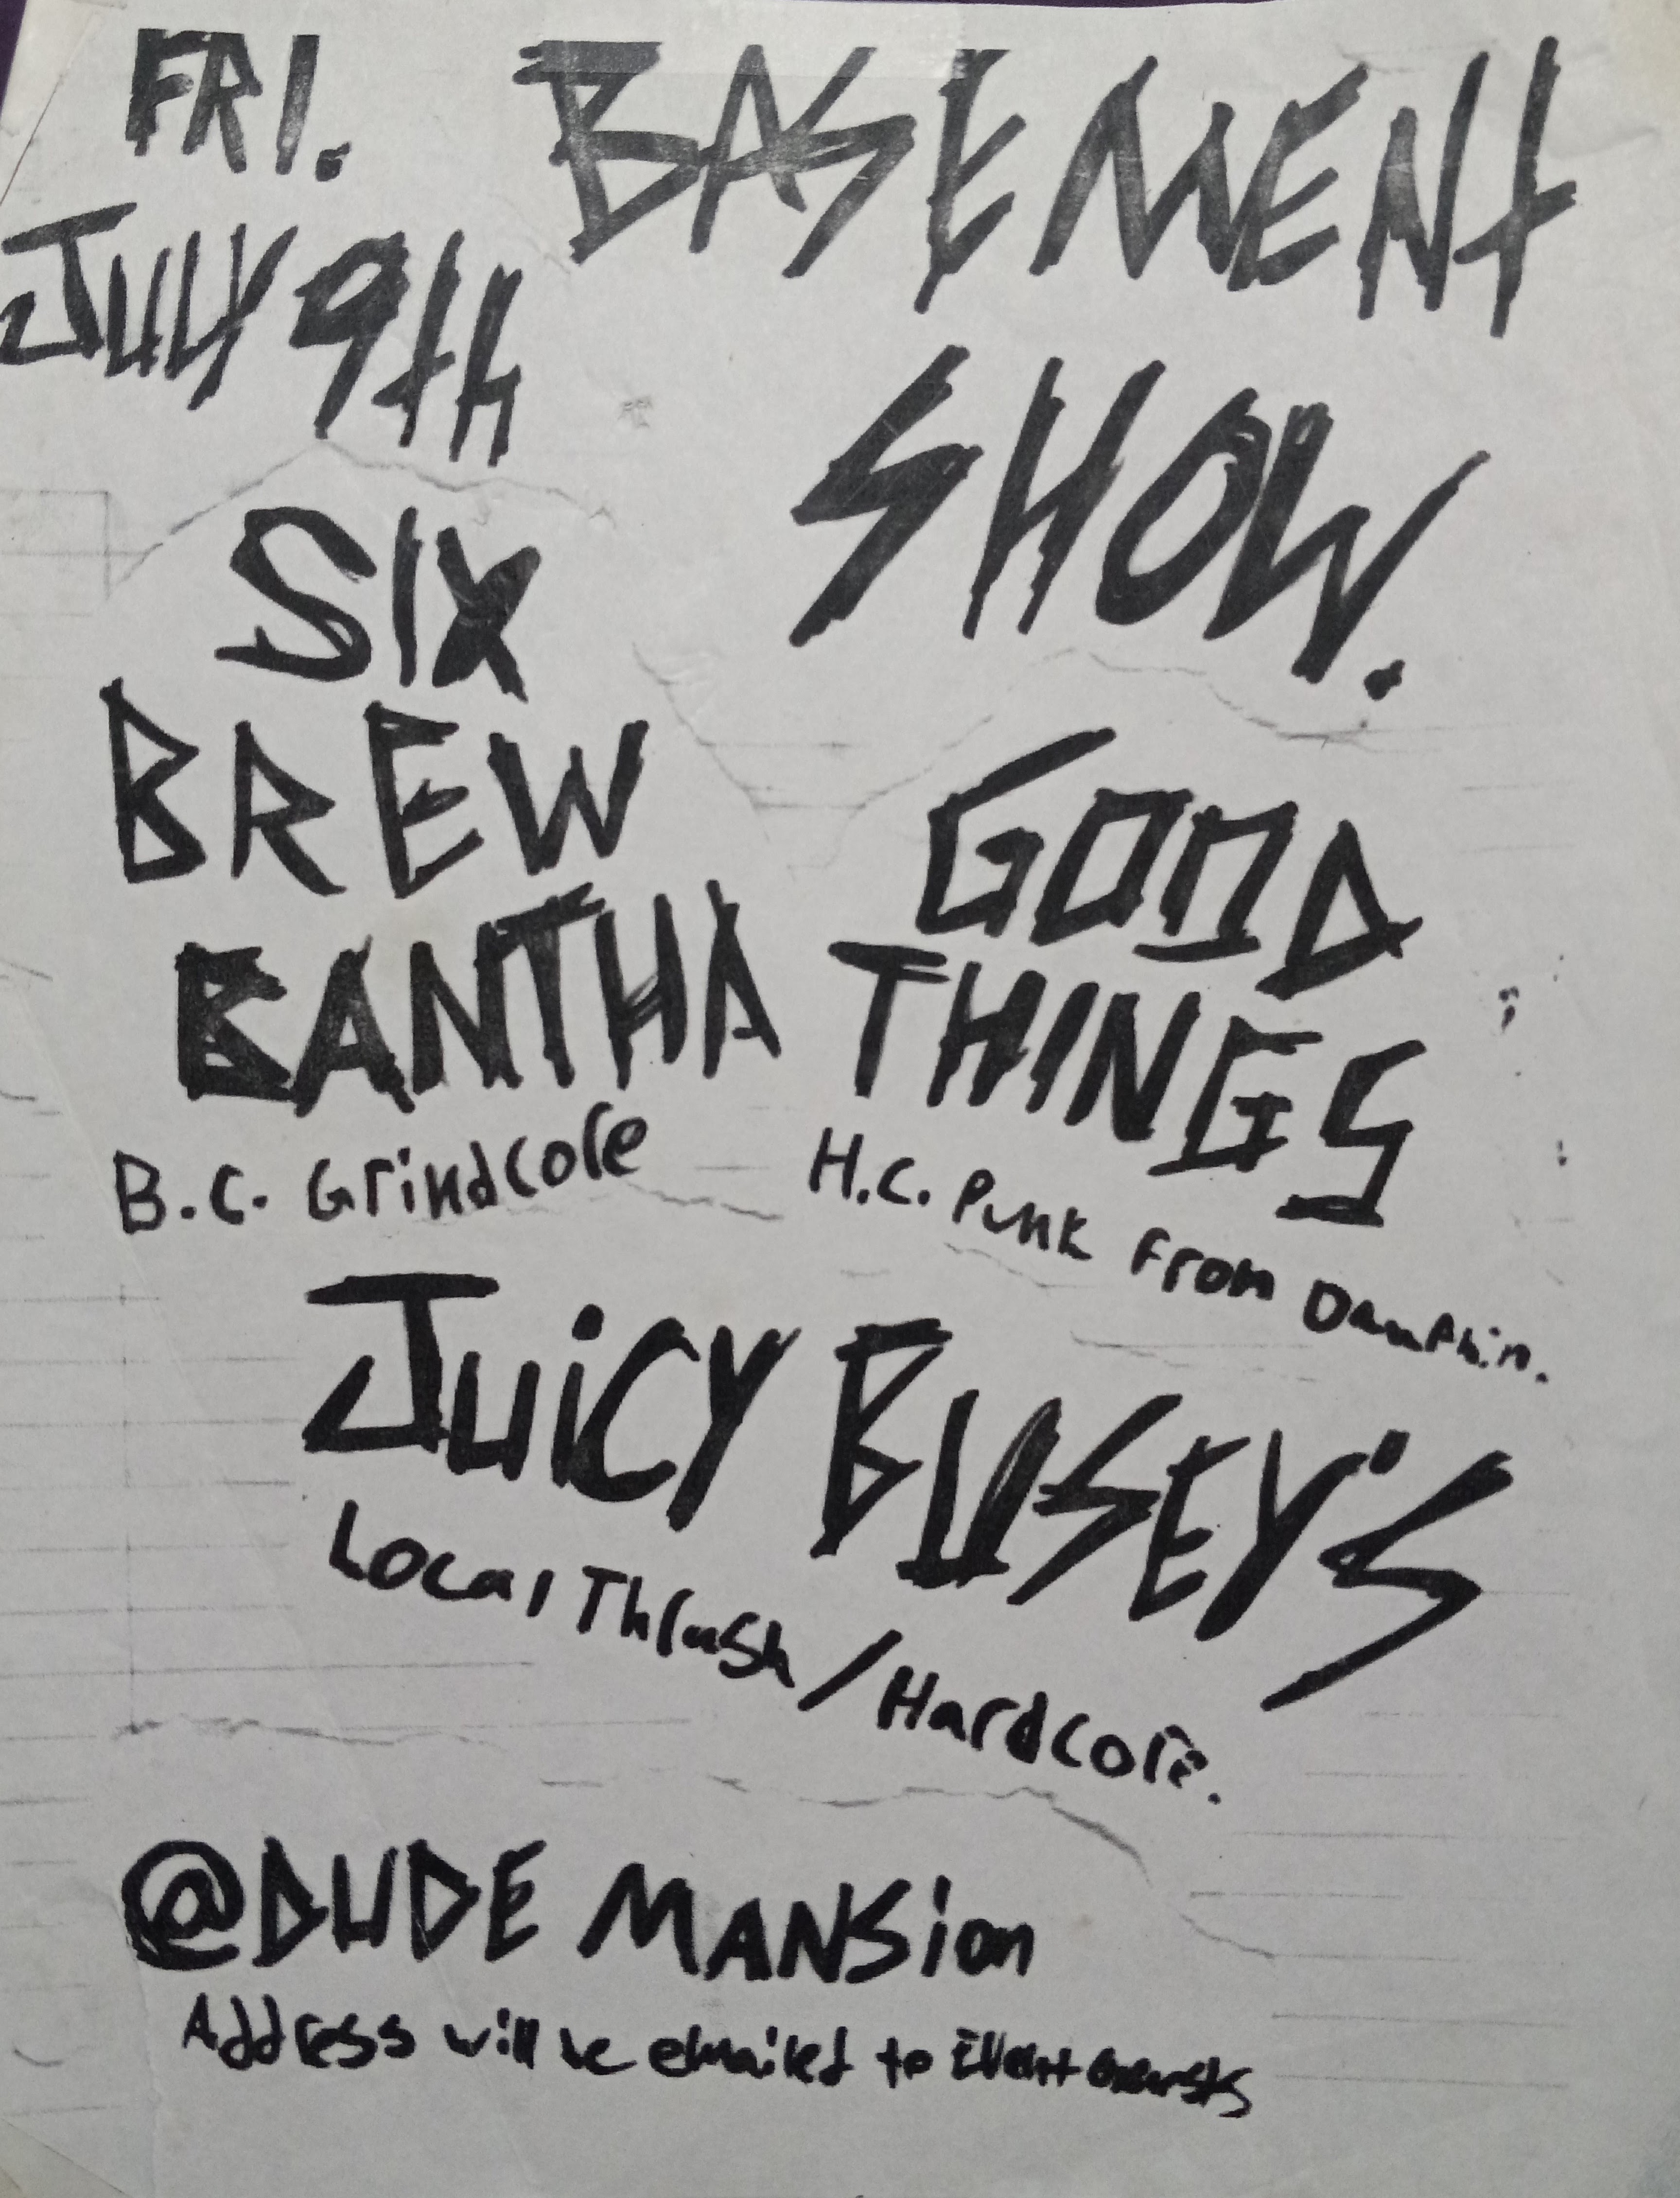 FRI.
JULY 9th
BASEMENt
SHOW.
SIX
BREW
BANTHA
B.C. Grindcore
GOOD
THINGS
H.C. Punk From Dauphin.
JUiCY BUSEY'S
Local Thrash/Hardcore.
@DUDE MANSion
Address will be emailed to Event